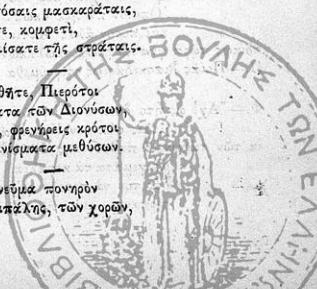 τόσαις μασκαράταις,
τε, κομφετὶ,
ίσατε τῆς στράταις.
θῆτε, Πιερότοι
ατα τῶν Διονύσων,
φρενήρεις κρότοι
νίσματα μεθύσων.
νεῦμα πονηρὸν
ιπάλης, τῶν χορῶν,
ΒΙΒΛΙΟΘΗ ΤΗΣ ΒΟΥΛΗΣ ΤΩΝ ΕΛΛΗΝΩ